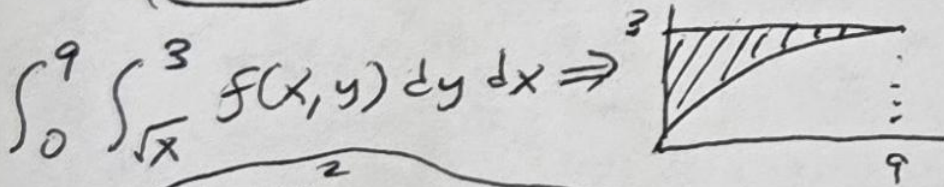 ∫₀⁹ ∫_√x³ f(x,y) dy dx ⇒
3
9
2